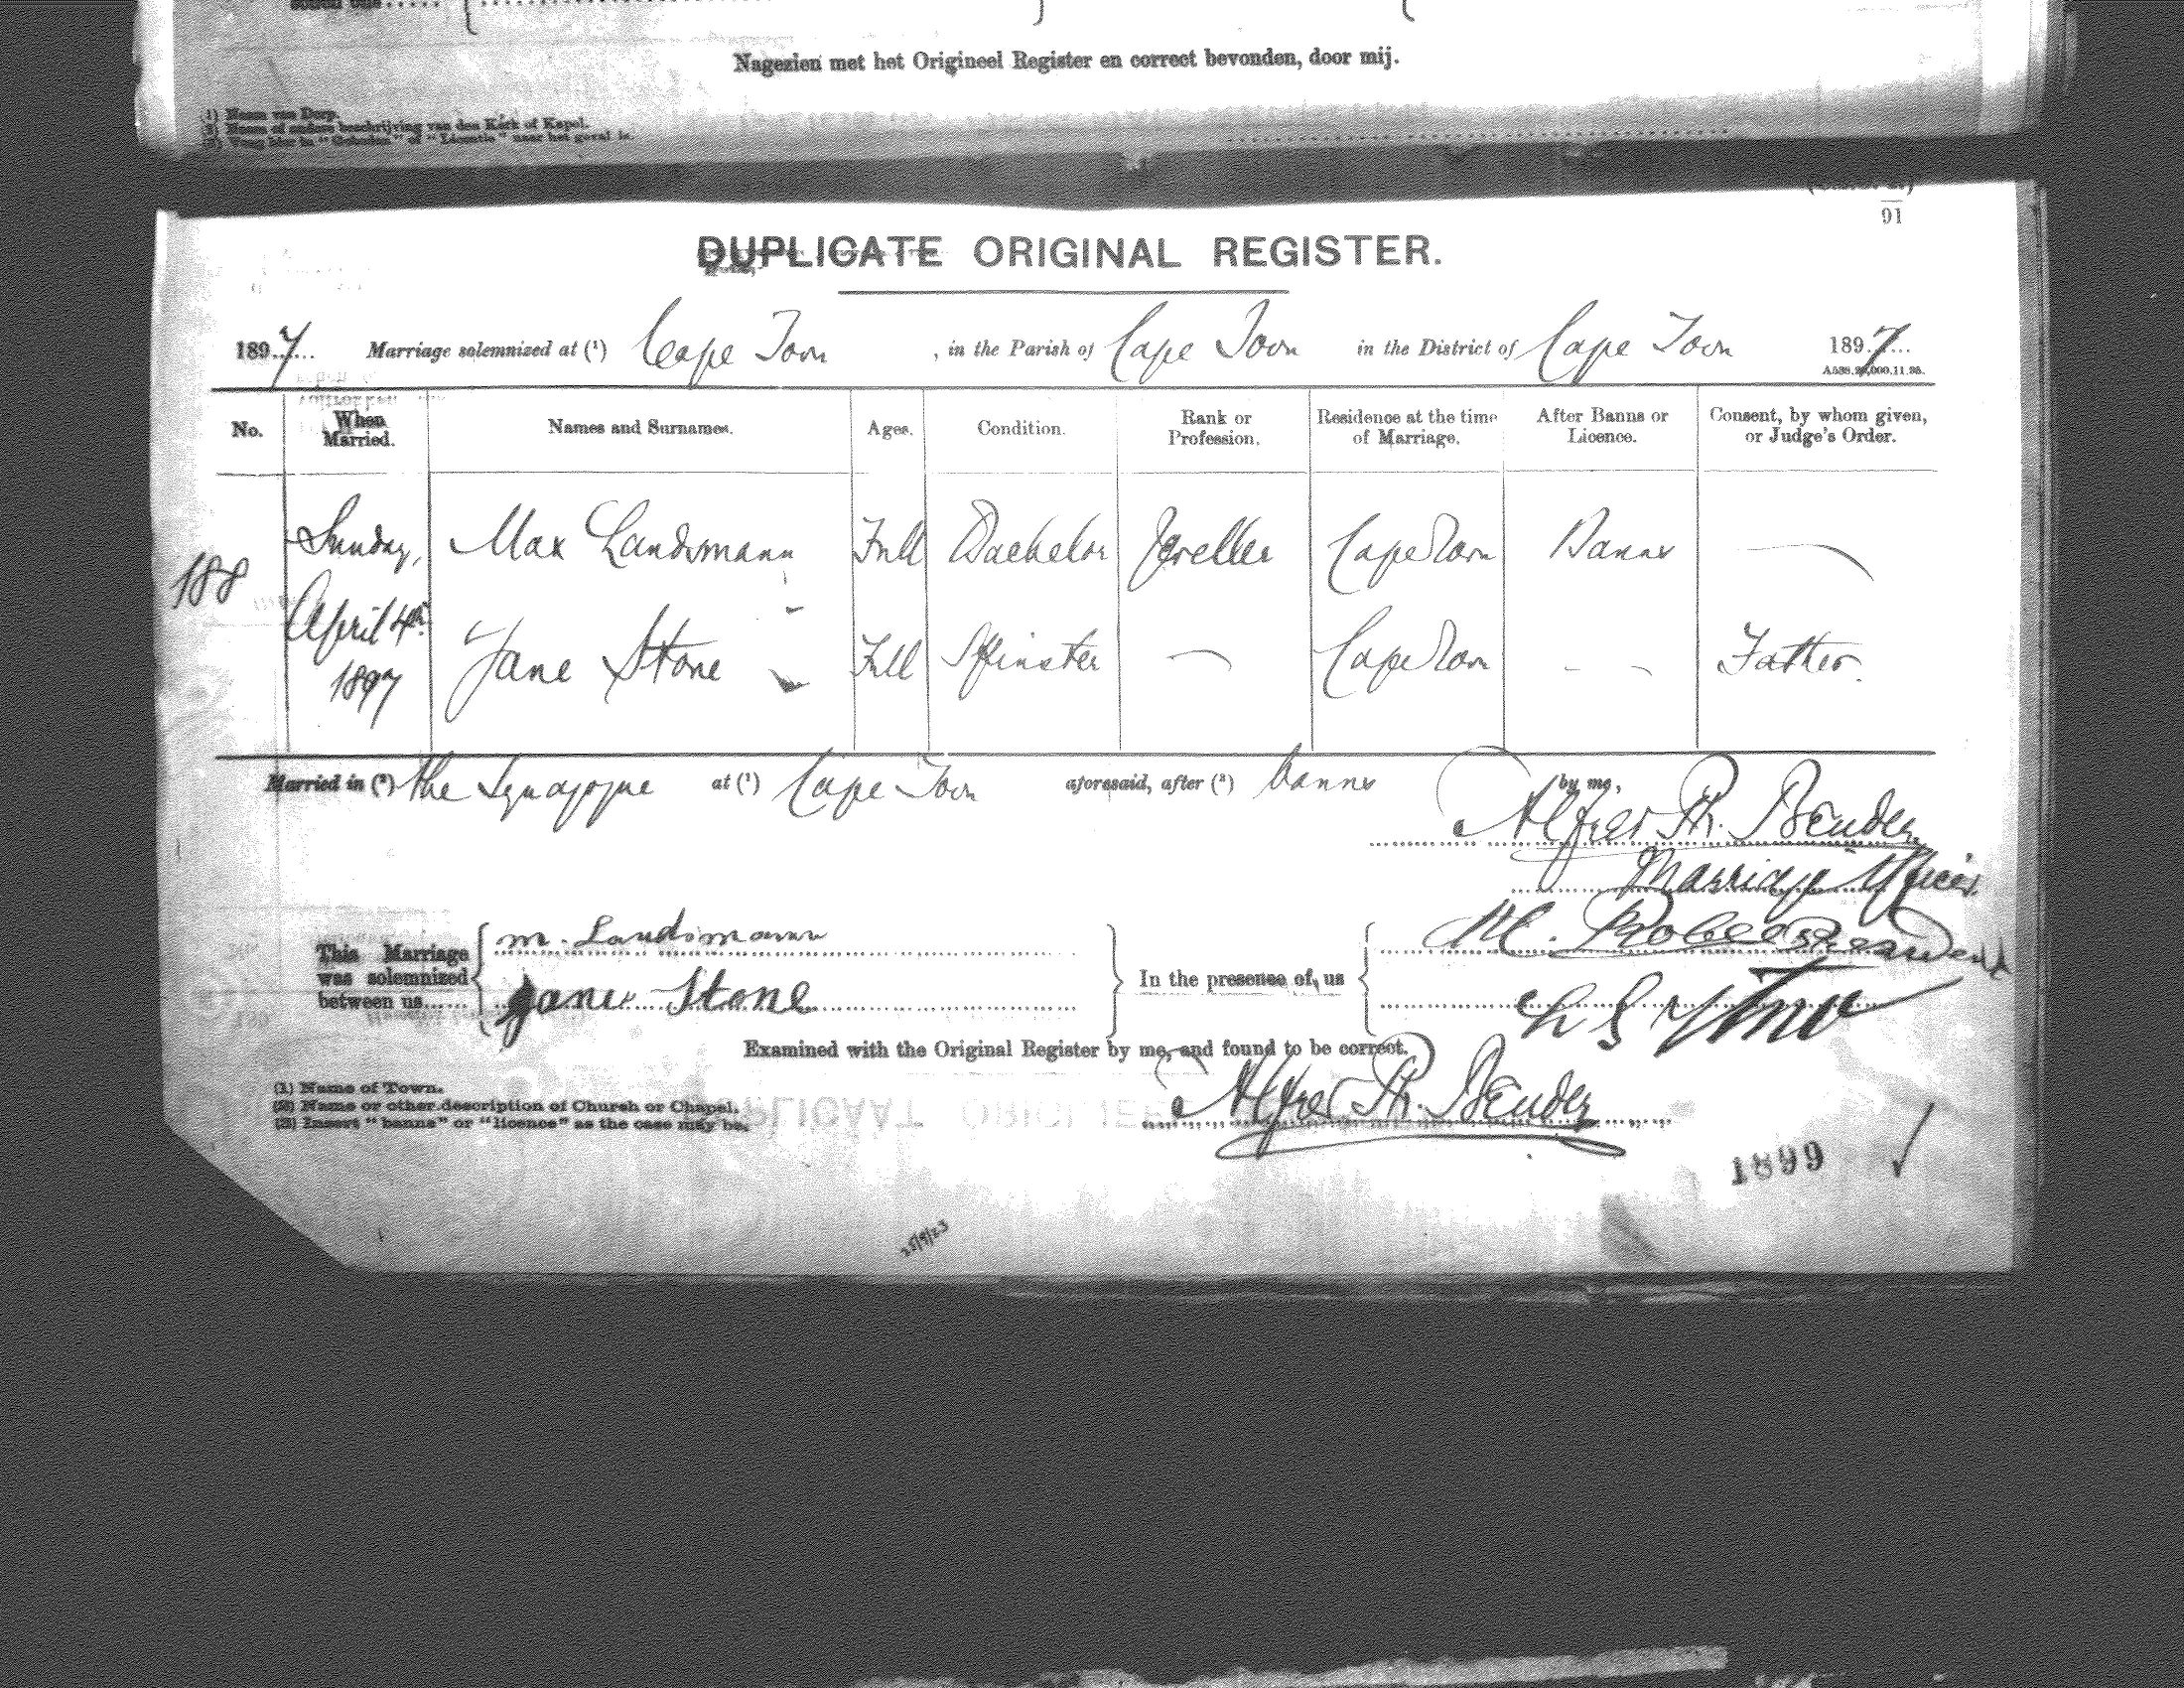 Nagezien met het Origineel Register en correct bevonden, door mij.
1) Naam van Dorp.
2) Naam of andere beschrijving van den Kerk of Kapel.
3) Voeg hier in "Geboden" of "Licentie" naar het geval is.
91
DUPLICATE ORIGINAL REGISTER.
1897 Marriage solemnized at (1) Cape Town, in the Parish of Cape Town in the District of Cape Town 1897
No. When Married. Names and Surnames. Ages. Condition. Rank or Profession. Residence at the time of Marriage. After Banns or Licence. Consent, by whom given, or Judge's Order.
188 Sunday, April 4th 1897
Max Landsmann Full Bachelor Jeweller Cape Town Banns —
Jane Stone Full Spinster — Cape Town - - Father.
Married in (2) the Synagogue at (1) Cape Town aforesaid, after (3) banns by me,
Alfred Ph. Bender,
Marriage Officer.
This Marriage was solemnized between us......
m. Landsmann
Jane Stone
In the presence of us
M.
Examined with the Original Register by me, and found to be correct.
Alfred Ph. Bender
(1.) Name of Town.
(2) Name or other description of Church or Chapel.
(3) Insert "banns" or "licence" as the case may be.
1899